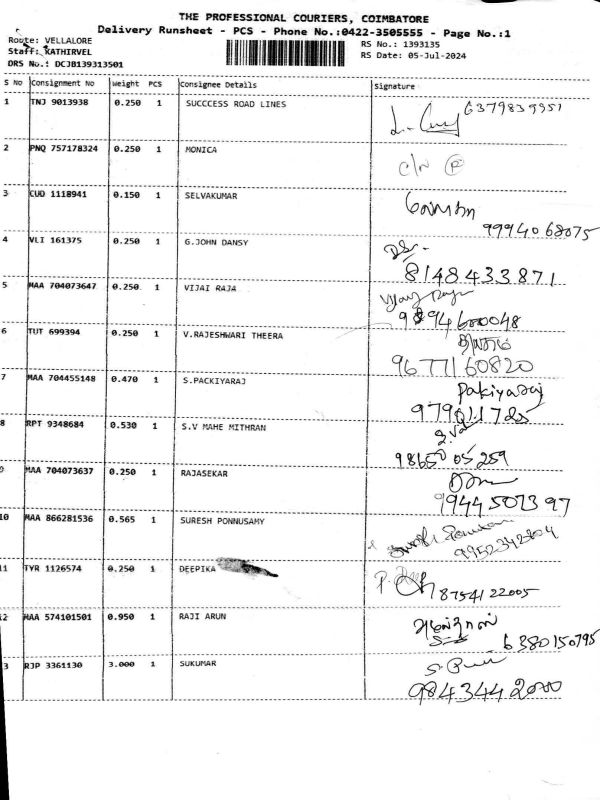 THE PROFESSIONAL COURIERS, COIMBATORE
Delivery Runsheet - PCS - Phone No.:0422-3505555 - Page No.:1
Route: VELLALORE
RS No.: 1393135
Staff: KATHIRVEL
RS Date: 05-Jul-2024
DRS No.: DCJB139313501
S No Consignment No Weight PCS Consignee Details Signature
1 TNJ 9013938 0.250 1 SUCCCESS ROAD LINES
6379839951
2 PNQ 757178324 0.250 1 MONICA
C/N (P)
3 CUD 1118941 0.150 1 SELVAKUMAR
9994068075
4 VLI 161375 0.250 1 G.JOHN DANSY
8148433871
5 MAA 704073647 0.250 1 VIJAI RAJA
Vijay Raja
9894600048
6 TUT 699394 0.250 1 V.RAJESHWARI THEERA
9677160820
7 MAA 704455148 0.470 1 S.PACKIYARAJ
Pakiyaraj
9790111725
8 RPT 9348684 0.530 1 S.V MAHE MITHRAN
9865005259
9 MAA 704073637 0.250 1 RAJASEKAR
9944501397
10 MAA 866281536 0.565 1 SURESH PONNUSAMY
9952342804
11 TYR 1126574 0.250 1 DEEPIKA
8754122005
12 MAA 574101501 0.950 1 RAJI ARUN
6380150795
3 RJP 3361130 3.000 1 SUKUMAR
9843442000